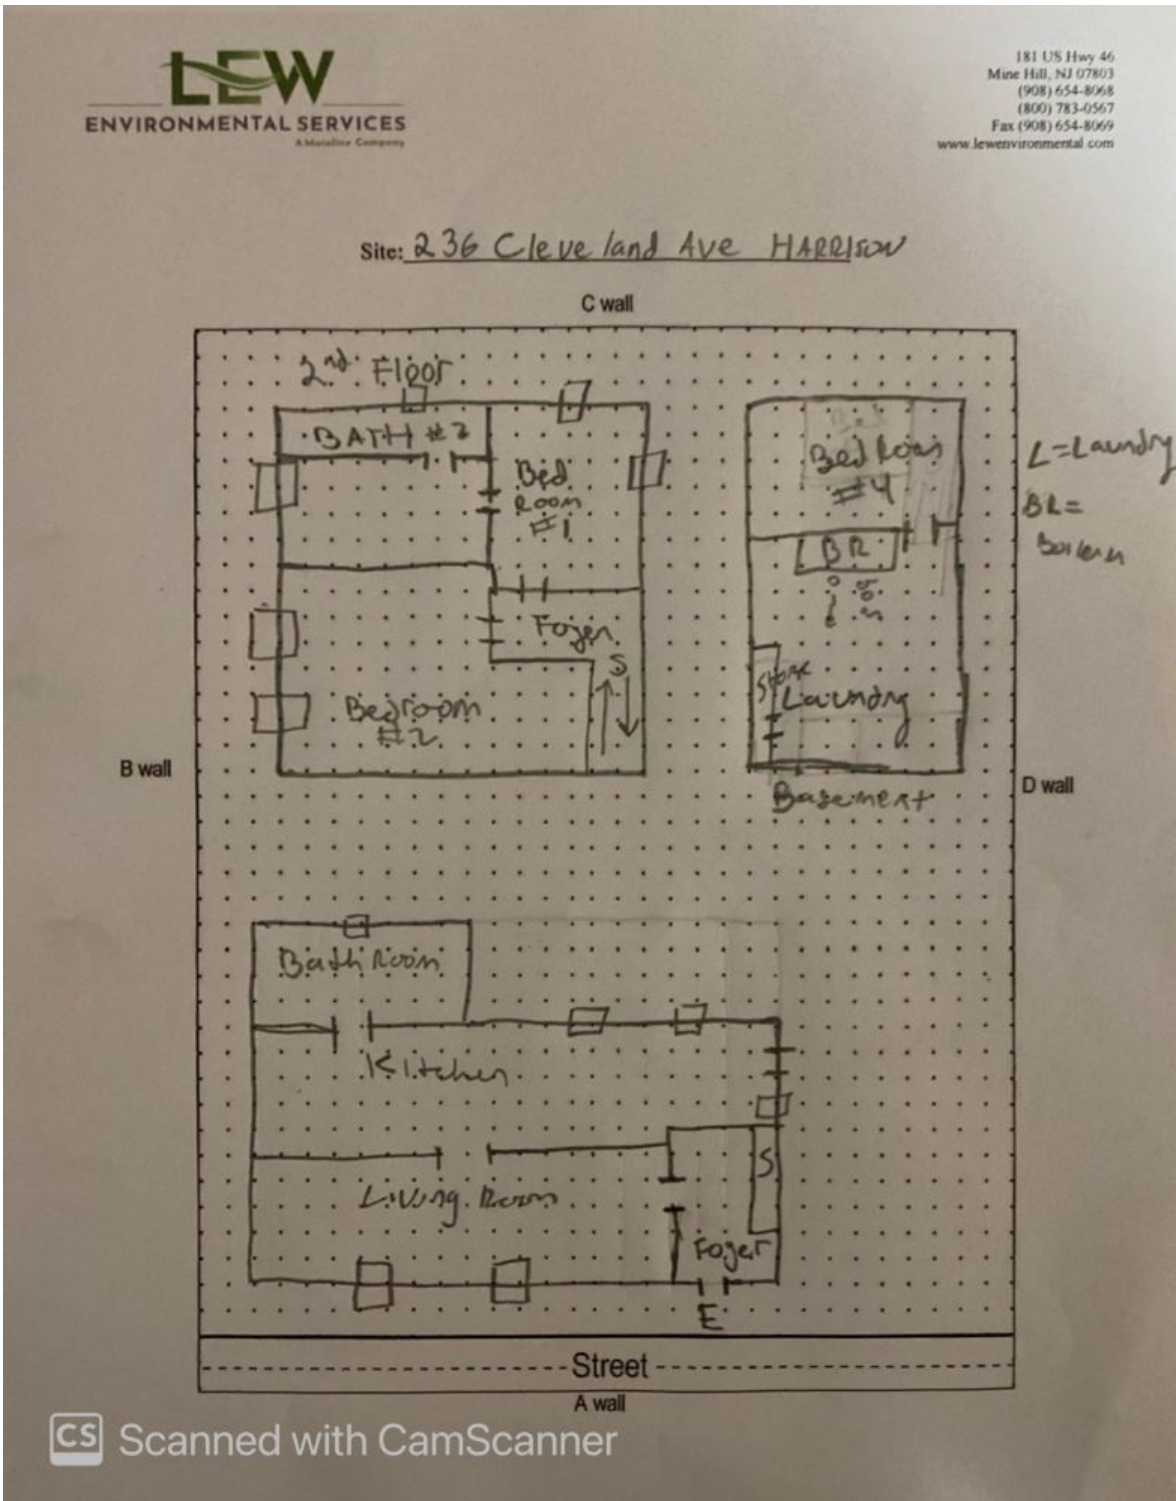 LEW
ENVIRONMENTAL SERVICES
A Mainline Company
181 US Hwy 46
Mine Hill, NJ 07803
(908) 654-8068
(800) 783-0567
Fax (908) 654-8069
www.lewenvironmental.com
Site: 236 Cleveland Ave HARRISON
C wall
2nd Floor
BATH #2
Bed
Room
#1
Bed Room
#4
L=Laundry
BR=
BR
Foyer
S
Store
Laundry
Bedroom
#2
B wall
D wall
Basement
Bath Room
Kitchen
S
Living Room
Foyer
E
Street
A wall
CS Scanned with CamScanner